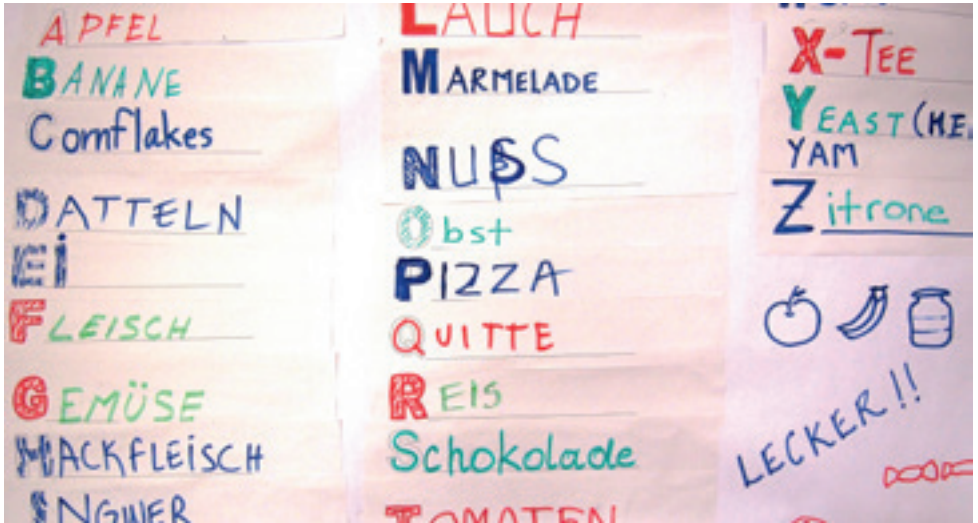 APFEL
BANANE
Cornflakes
DATTELN
Ei
FLEISCH
GEMÜSE
HACKFLEISCH
INGWER
LAUCH
MARMELADE
NUSS
Obst
PIZZA
QUITTE
REIS
Schokolade
TOMATEN
X-TEE
YEAST (HE
YAM
Zitrone
LECKER!!